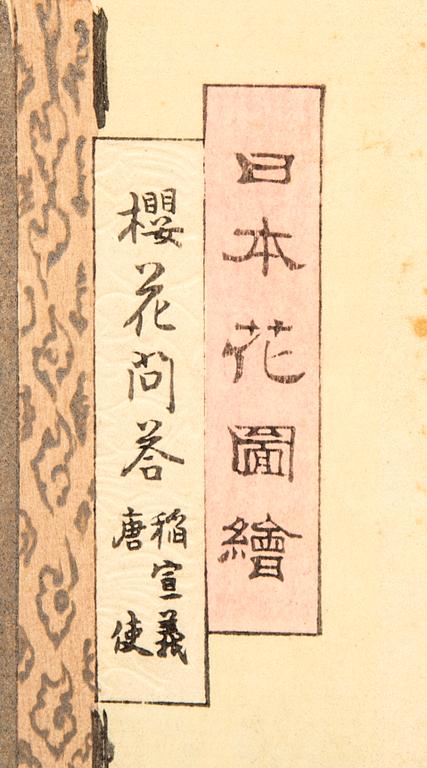 日本花圖繪
櫻花問答
稲宣義
唐使